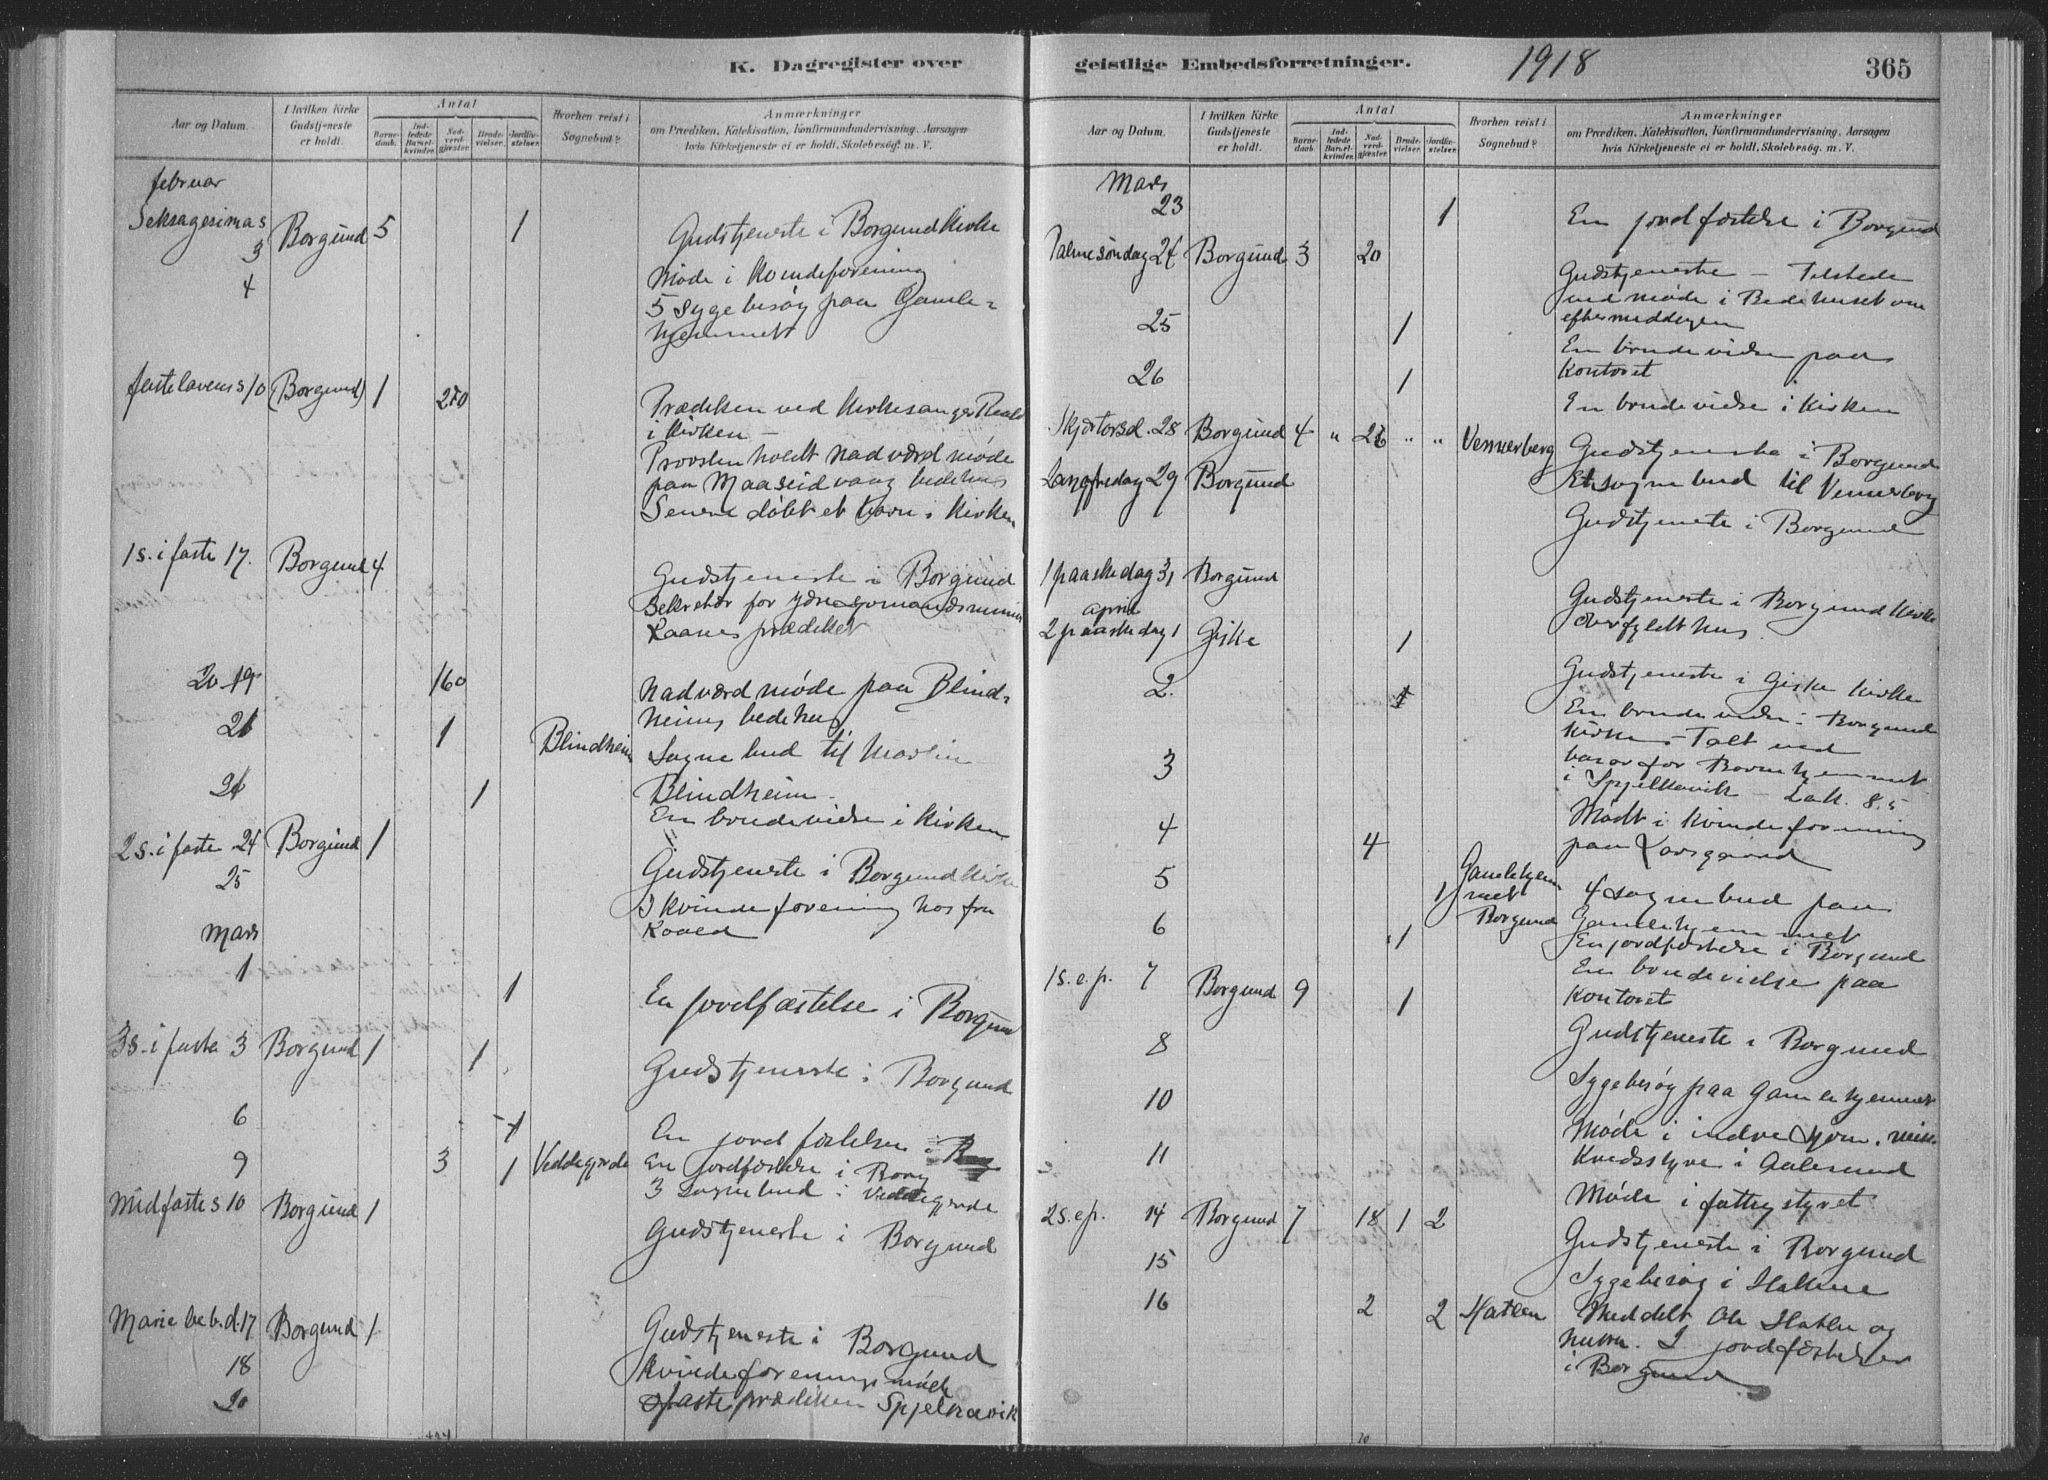 K. Dagregister over
Aar og Datum.
I hvilken Kirke Gudstjeneste er holdt.
Antal
Barnedaab.
Indledede Barselkvinder.
Nadverdgjæster
Brudevielser.
Jordfæstelser
Hvorhen reist i Sognebud?
Anmærkninger
om Prædiken, Katekisation, Konfirmandundervisning, Aarsagen
hvis Kirketjeneste ei er holdt, Skolebesøg m. V.
februar
Seksagesima s 3 Borgund 5 1 Gudstjeneste i Borgund Kirke
4 Møde i Kvindeforening
5 sygebesøg paa Gamle-
hjemmet
fastelavens s 10 (Borgund) 1 210 Prædiken ved Kirkesanger
i Kirken –
Provsten holdt nadværdmøde
paa Maaseidvaag bedehus
Senere døbt et barn i Kirken
1 s. i faste 17. Borgund 4 Gudstjeneste i Borgund
Sekretær for
Kaanes prædiket
20 19 160 Nadværdmøde paa Blind-
heims bedehus
21 1 Blindheim Sognebud til
Blindheim –
1 En brudevielse i Kirken
2 s. i faste 24 Borgund 1 Gudstjeneste i Borgund Kirke
25 I Kvindeforening hos fru
Mars
1 1 En jordfæstelse i Borgund
3 s. i faste 3 Borgund 1 1 Gudstjeneste i Borgund
6 1 En jordfæstelse i
9 3 1 Veddegjerde En jordfæstelse i Borg
3 sognebud i Veddegjerde
Midfaste s 10 Borgund 1 Gudstjeneste i Borgund
Marie beb. d. 17 Borgund 1 Gudstjeneste i Borgund
18 Kvindeforeningsmøde
20 fasteprædiken Spjelkavik
geistlige Embedsforretninger.
1918
365
Aar og Datum.
I hvilken Kirke Gudstjeneste er holdt.
Antal
Barnedaab.
Indledede Barselkvinder.
Nadverdgjæster
Brudevielser.
Jordfæstelser
Hvorhen reist i Sognebud?
Anmærkninger
om Prædiken, Katekisation, Konfirmandundervisning, Aarsagen
hvis Kirketjeneste ei er holdt, Skolebesøg m. V.
Mars
23 1 En jordfæstelse i Borgund
Palmesøndag 24 Borgund 3 20 Gudstjeneste – Tilstede
ved møde i Bedehuset om
eftermiddagen
25 1 En brudevielse paa
Kontoret
26 1 En brudevielse i Kirken
Skjærtorsd. 28 Borgund 4 " " " Vennerberg Gudstjeneste i Borgund
Et sognebud til Vennerberg
Langfredag 29 Borgund Gudstjeneste i Borgund
1 paaskedag 31 Borgund Gudstjeneste i Borgund Kirke
overfyldt hus.
april
2 paaskedag 1 Giske 1 Gudstjeneste i Giske Kirke
2. 1 En brudevielse i Borgund
Kirke – Talt ved
basar for Barnehjemmet
i Spjelkavik –
3 Mødt i Kvindeforening
paa
4 4 Gamlehjemmet 4 sognebud paa
Gamlehjemmet
5 1 Borgund En jordfæstelse i Borgund
6 1 En brudevielse paa
Kontoret
1 s. e. p. 7 Borgund 9 1 Gudstjeneste i Borgund
8 Sygebesøg paa Gamlehjemmet
10 Møde i indre
Kredsstyre i Aalesund
11 Møde i fattigstyret
2 s. e. p. 14 Borgund 7 18 1 2 Gudstjeneste i Borgund
15 Sygebesøg i Hatlene
16 2 2 Hatlen Meddelt Ole Hatlen og
hustru. 2 jordfæstelser
i Borgund